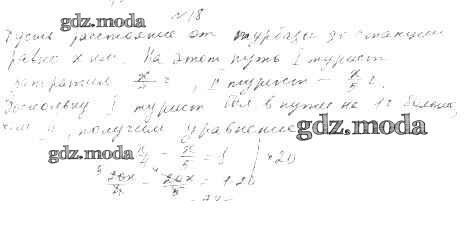 № 18
gdz.moda
Пусть расстояние от турбазы до станции
равно x км. На этот путь I турист
затратил x/4 ч, II турист – x/5 ч.
Поскольку I турист был в пути на 1 ч больше,
чем II, получаем уравнение
gdz.moda
gdz.moda
x/4 – x/5 = 1 | · 20
20x/4 – 20x/5 = 1·20